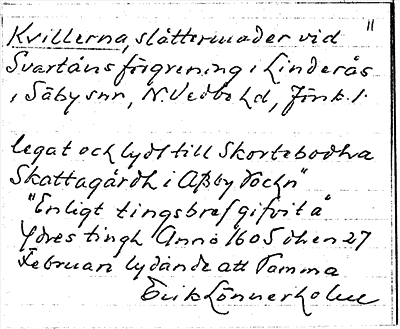 Kvillerna, slåttermader vid "
Svartåns förgrening i Linderås
i Säby snn, N. Vedbo hd, Jönk. l.
legat och lydt till Skortebodha
Skattagårdh i Asby Sockn"
"Enligt tingsbref gifvit å
Ydres tingh Anno 1605 dhen 27
Februari lydande att Samma
Erik Lönnerholm